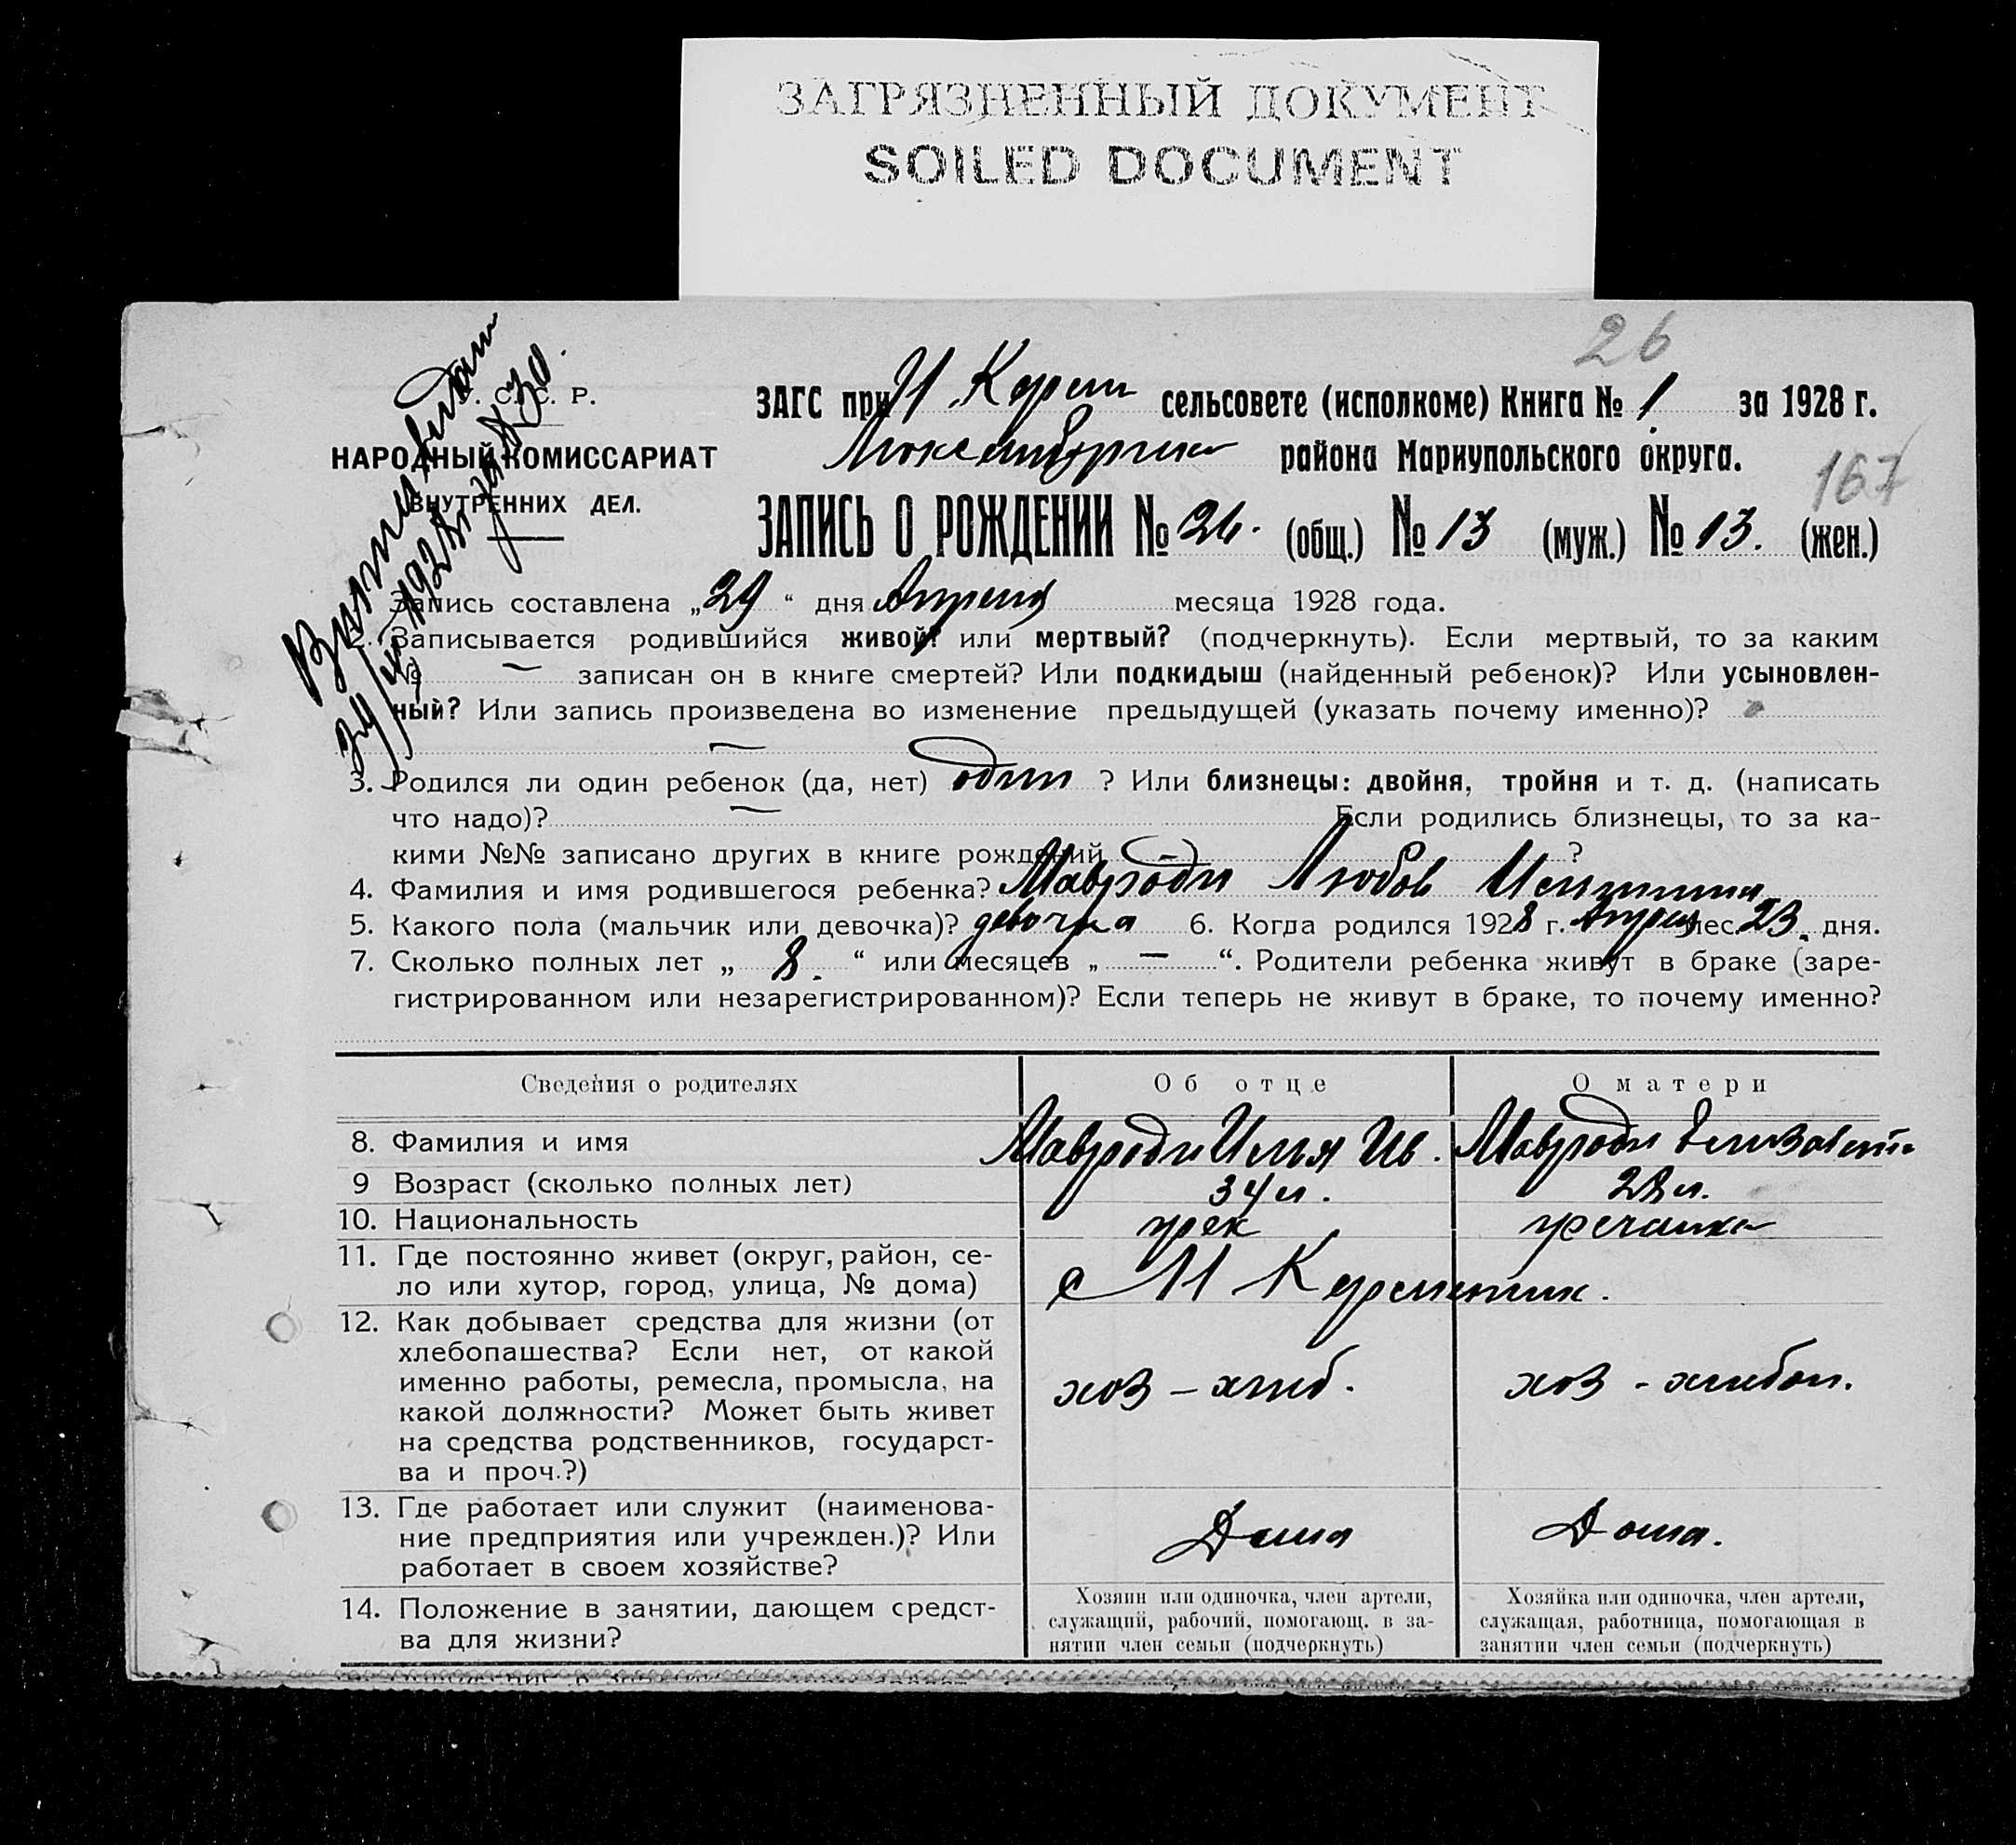 ЗАГРЯЗНЕННЫЙ ДОКУМЕНТ
SOILED DOCUMENT
26
С. С. Р.
НАРОДНЫЙ КОМИССАРИАТ
ВНУТРЕННИХ ДЕЛ.
ЗАГС при Керм сельсовете (исполкоме) Книга № 1 за 1928 г.
района Мариупольского округа.
167
ЗАПИСЬ О РОЖДЕНИИ № 26. (общ.) № 13 (муж.) № 13. (жен.)
Запись составлена „29“ дня Апреля месяца 1928 года.
2. Записывается родившийся живой? или мертвый? (подчеркнуть). Если мертвый, то за каким
№ — записан он в книге смертей? Или подкидыш (найденный ребенок)? Или усыновлен-
ный? Или запись произведена во изменение предыдущей (указать почему именно)?
—
3. Родился ли один ребенок (да, нет) один ? Или близнецы: двойня, тройня и т. д. (написать
что надо)? — Если родились близнецы, то за ка-
кими №№ записано других в книге рождений (–) ?
4. Фамилия и имя родившегося ребенка? Мавроди Любов
5. Какого пола (мальчик или девочка)? девочка 6. Когда родился 1928 г. Апреля мес. 23. дня.
7. Сколько полных лет „ 8. “ или месяцев „ — “. Родители ребенка живут в браке (заре-
гистрированном или незарегистрированном)? Если теперь не живут в браке, то почему именно?
Сведения о родителях Об отце О матери
8. Фамилия и имя Мавроди Илья Ив. Мавроди Елизавета
9 Возраст (сколько полных лет) 34 л. 28 л.
10. Национальность грек гречанка
11. Где постоянно живет (округ, район, се-
ло или хутор, город, улица, № дома) с М Керменчик.
12. Как добывает средства для жизни (от
хлебопашества? Если нет, от какой
именно работы, ремесла, промысла, на хоз – хлеб. хоз - хлебоп.
какой должности? Может быть живет
на средства родственников, государст-
ва и проч.?)
13. Где работает или служит (наименова-
ние предприятия или учрежден.)? Или Дома Дома.
работает в своем хозяйстве?
14. Положение в занятии, дающем средст-
ва для жизни?
Хозяин или одиночка, член артели,
служащий, рабочий, помогающ. в за-
нятии член семьи (подчеркнуть)
Хозяйка или одиночка, член артели,
служащая, работница, помогающая в
занятии член семьи (подчеркнуть)